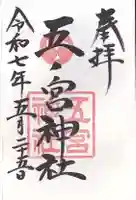 奉拝
五ノ宮神社
五宮神社
令和七年五月二十五日